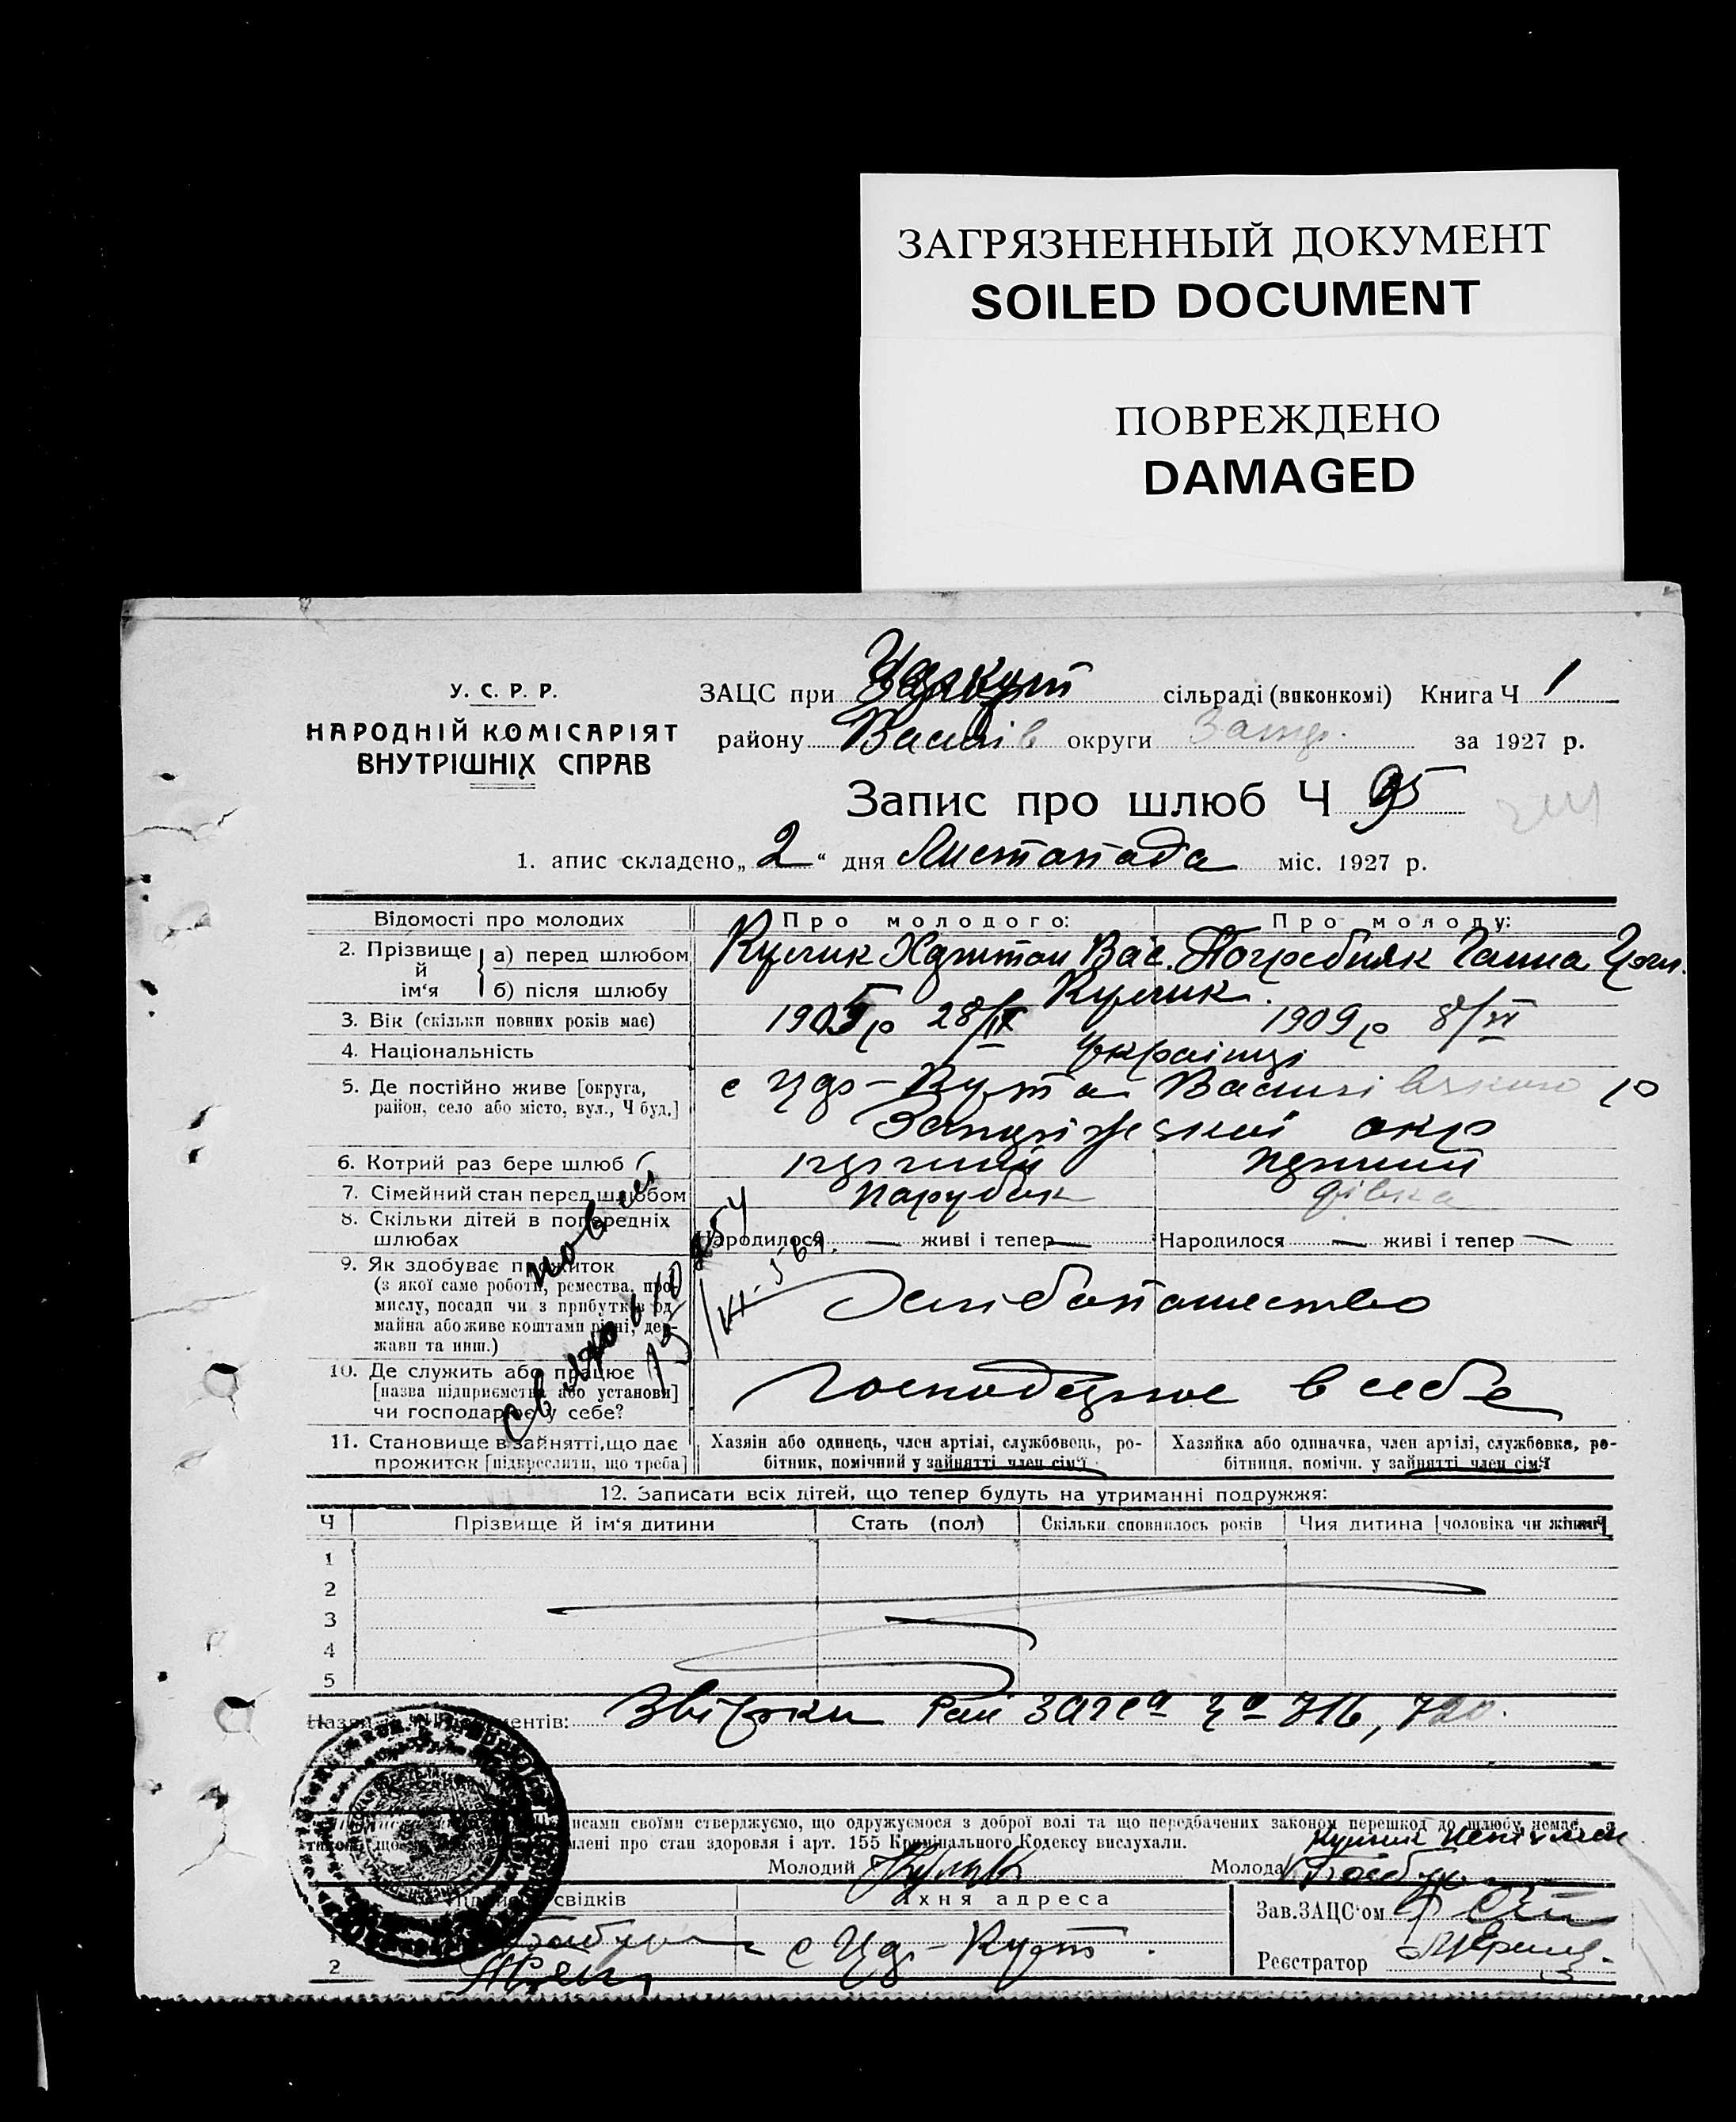 ЗАГРЯЗНЕННЫЙ ДОКУМЕНТ
SOILED DOCUMENT
ПОВРЕЖДЕНО
DAMAGED
У. С. Р. Р.
НАРОДНІЙ КОМІСАРІЯТ
ВНУТРІШНІХ СПРАВ
ЗАЦС при сільраді (виконкомі) Книга Ч 1
району Василів округи Запор. за 1927 р.
Запис про шлюб Ч 95
1. апис складено „2“ дня Листопада міс. 1927 р.
Відомості про молодих Про молодого: Про молоду:
2. Прізвище й ім‘я а) перед шлюбом Кулик Харитон Вас. Погребняк Ганна
б) після шлюбу Кулик.
3. Вік (скільки повних років має) 1905 р 28/IX 1909 р 8/XI
4. Національність Українці
5. Де постійно живе [округа, с Цар-Кута Василівського р
район, село або місто, вул., Ч буд.] Запорізької окр
6. Котрий раз бере шлюб перший перший
7. Сімейний стан перед шлюбом парубок дівка
8. Скільки дітей в попередніх
шлюбах Народилося — живі і тепер — Народилося — живі і тепер —
9. Як здобуває прожиток
(з якої саме роботи, ремества, про-
мислу, посади чи з прибутків од
майна або живе коштами рідні, дер-
жави та инш.) Хліборобство
10. Де служить або працює
[назва підприємства або установи]
чи господарює у себе? Господарює в себе
11. Становище в зайнятті, що дає
прожиток [підкреслити, що треба]
Хазяїн або одинець, член артілі, службовець, ро-
бітник, помічний у зайнятті член сім‘ї
Хазяйка або одиначка, член артілі, службовка, ро-
бітниця, помічн. у зайнятті член сім‘ї
12. Записати всіх дітей, що тепер будуть на утриманні подружжя:
Ч Прізвище й ім‘я дитини Стать (пол) Скільки сповнилось років Чия дитина [чоловіка чи жінки]
1
2
3
4
5
Назви ментів: Звірки Рай ЗАГСа за 716, 720.
исами своїми стверджуємо, що одружуємося з доброї волі та що передбачених законом перешкод до шлюбу немає, а
також, що лені про стан здоровля і арт. 155 Кримінального Кодексу вислухали.
Молодий Кулик Молода
свідків Їхня адреса
с Цар-Кут.
2
Зав.ЗАЦС‘ом
Реєстратор